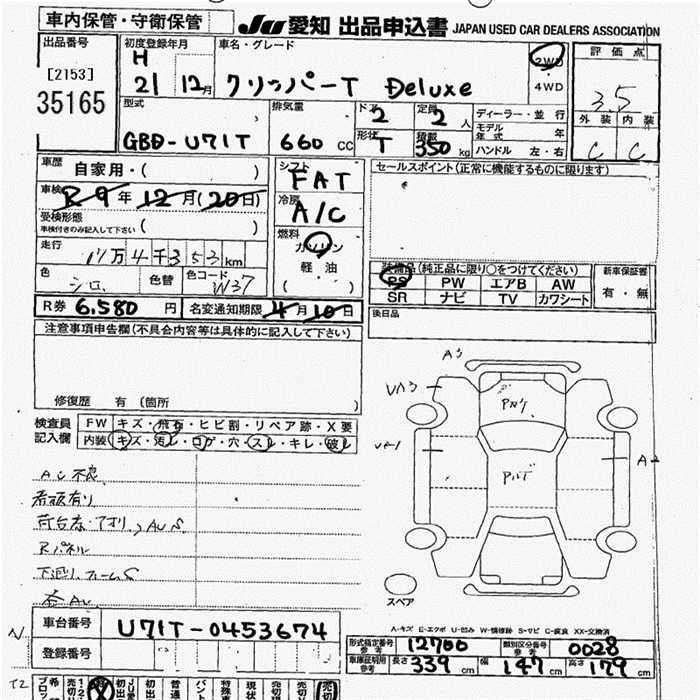 車内保管・守衛保管
JU 愛知 出品申込書 JAPAN USED CAR DEALERS ASSOCIATION
出品番号
[2153]
35165
初度登録年月
H
21 12月
車名・グレード
クリッパーT Deluxe
2WD
4WD
評価点
3.5
外装 内装
C C
型式
GBD-U71T
排気量
660 CC
ドア
2
定員
2人
形状
T
積載
350kg
ディーラー・並行
モデル年式 年
ハンドル 左・右
車歴
自家用・( )
車検 R9年12月(20日)
受検形態
車検付きのみ記入して下さい ( )
走行
11万4千353km
色
シロ
色替
色コード
W37
シフト
FAT
冷房
A/C
燃料
ガソリン
軽油
( )
セールスポイント(正常に機能するものに限ります)
装備品(純正品に限り○をつけてください)
PS PW エアB AW
SR ナビ TV カワシート
新車保証書
有・無
R券 6.580円
名変通知期限 4月10日
後日品
注意事項申告欄(不具合内容等は具体的に記入して下さい)
修復歴 有 (箇所 )
検査員記入欄
FW キズ・飛石・ヒビ割・リペア跡・X要
内装 キズ・汚レ・コゲ・穴・スレ・キレ・破レ
A3
UA3
A2
スペア
A-キズ E-エクボ U-凹み W-補修跡 S-サビ C-腐食 XX-交換済
車台番号
U71T-0453674
登録番号
形式指定番号 参考 12700
類別区分番号 参考 0028
車庫証明用 参考 長さ 339cm 幅 147cm 高さ 179cm